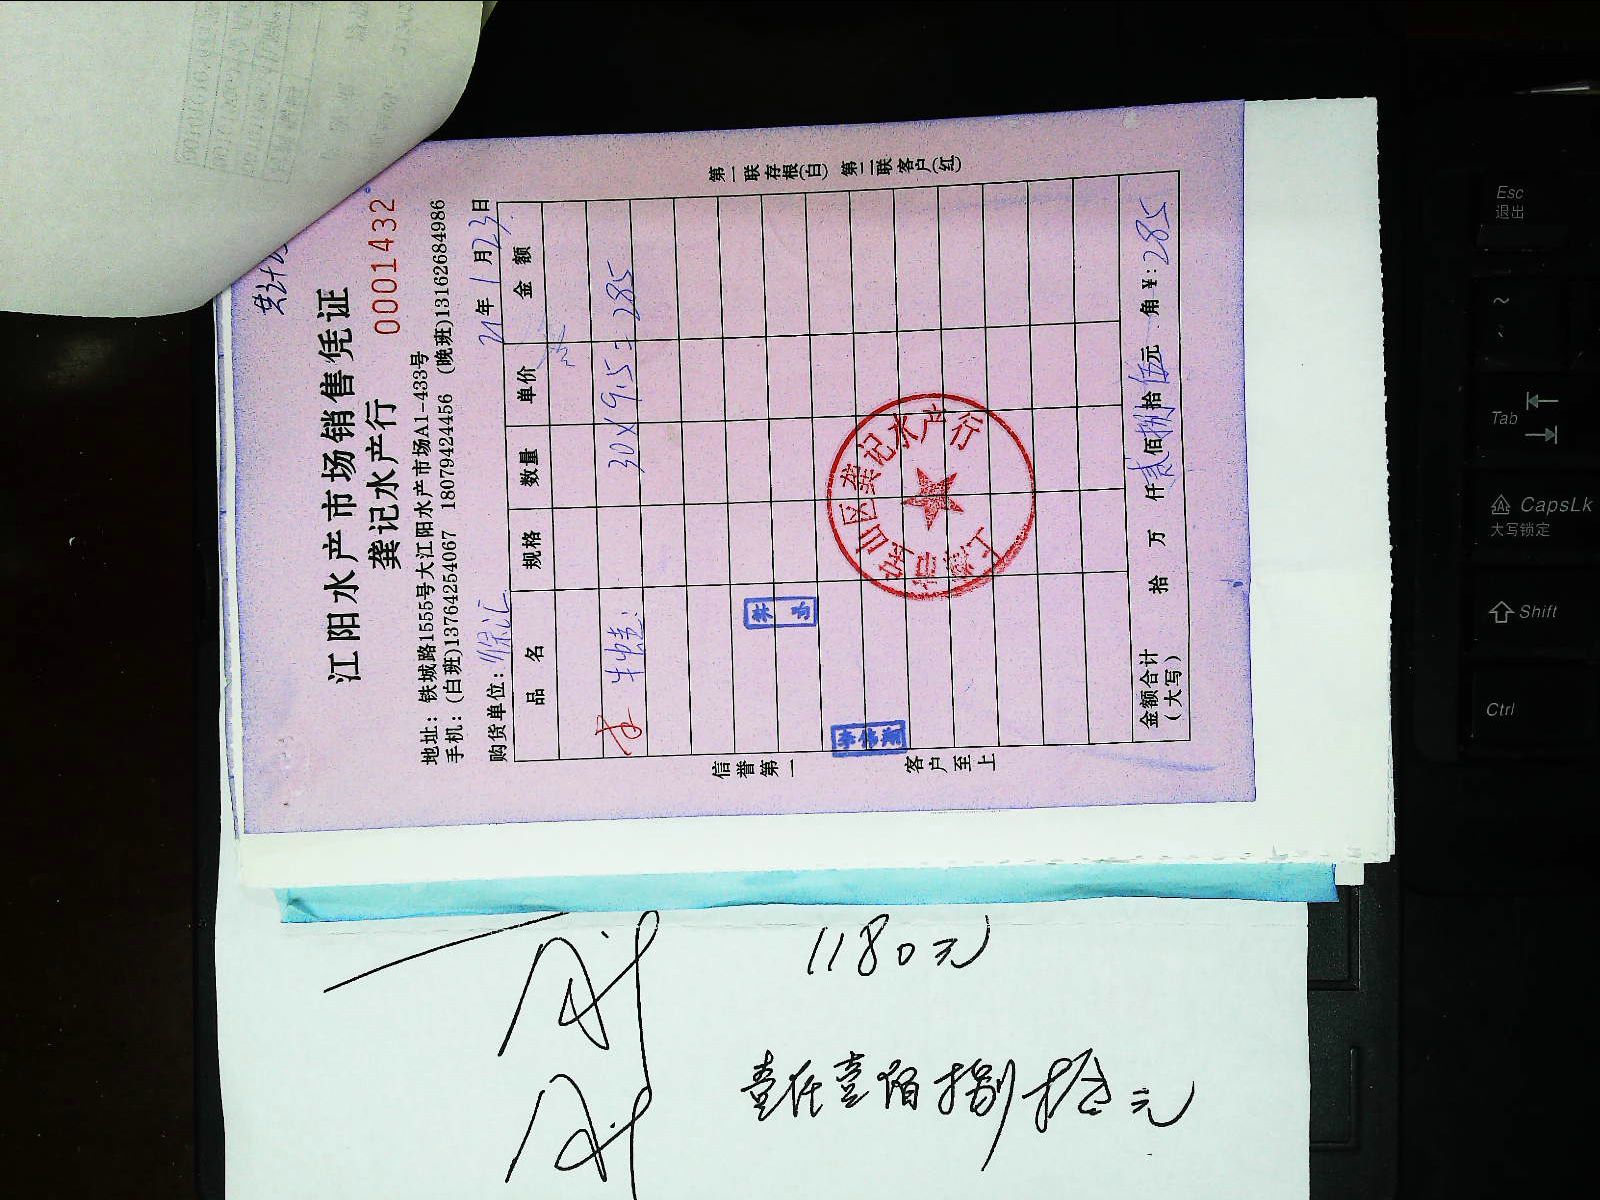 江阳水产市场销售凭证
龚记水产行 0001432
地址：铁城路1555号大江阳水产市场A1-433号
手机：(白班)13764254067 18079424456 (晚班)13162684986
购货单位：徐汇 21年1月23日
品 名 规格 数量 单价 金 额
30×9.5=285
金额合计(大写) 拾 万 仟贰佰捌拾伍元 角 ¥：285
第一联存根(白) 第二联客户(红)
信誉第一 客户至上
上海市宝山区龚记水产行
1180元
壹仟壹佰捌拾元
Esc
退出
~
Tab
CapsLk
大写锁定
Shift
Ctrl